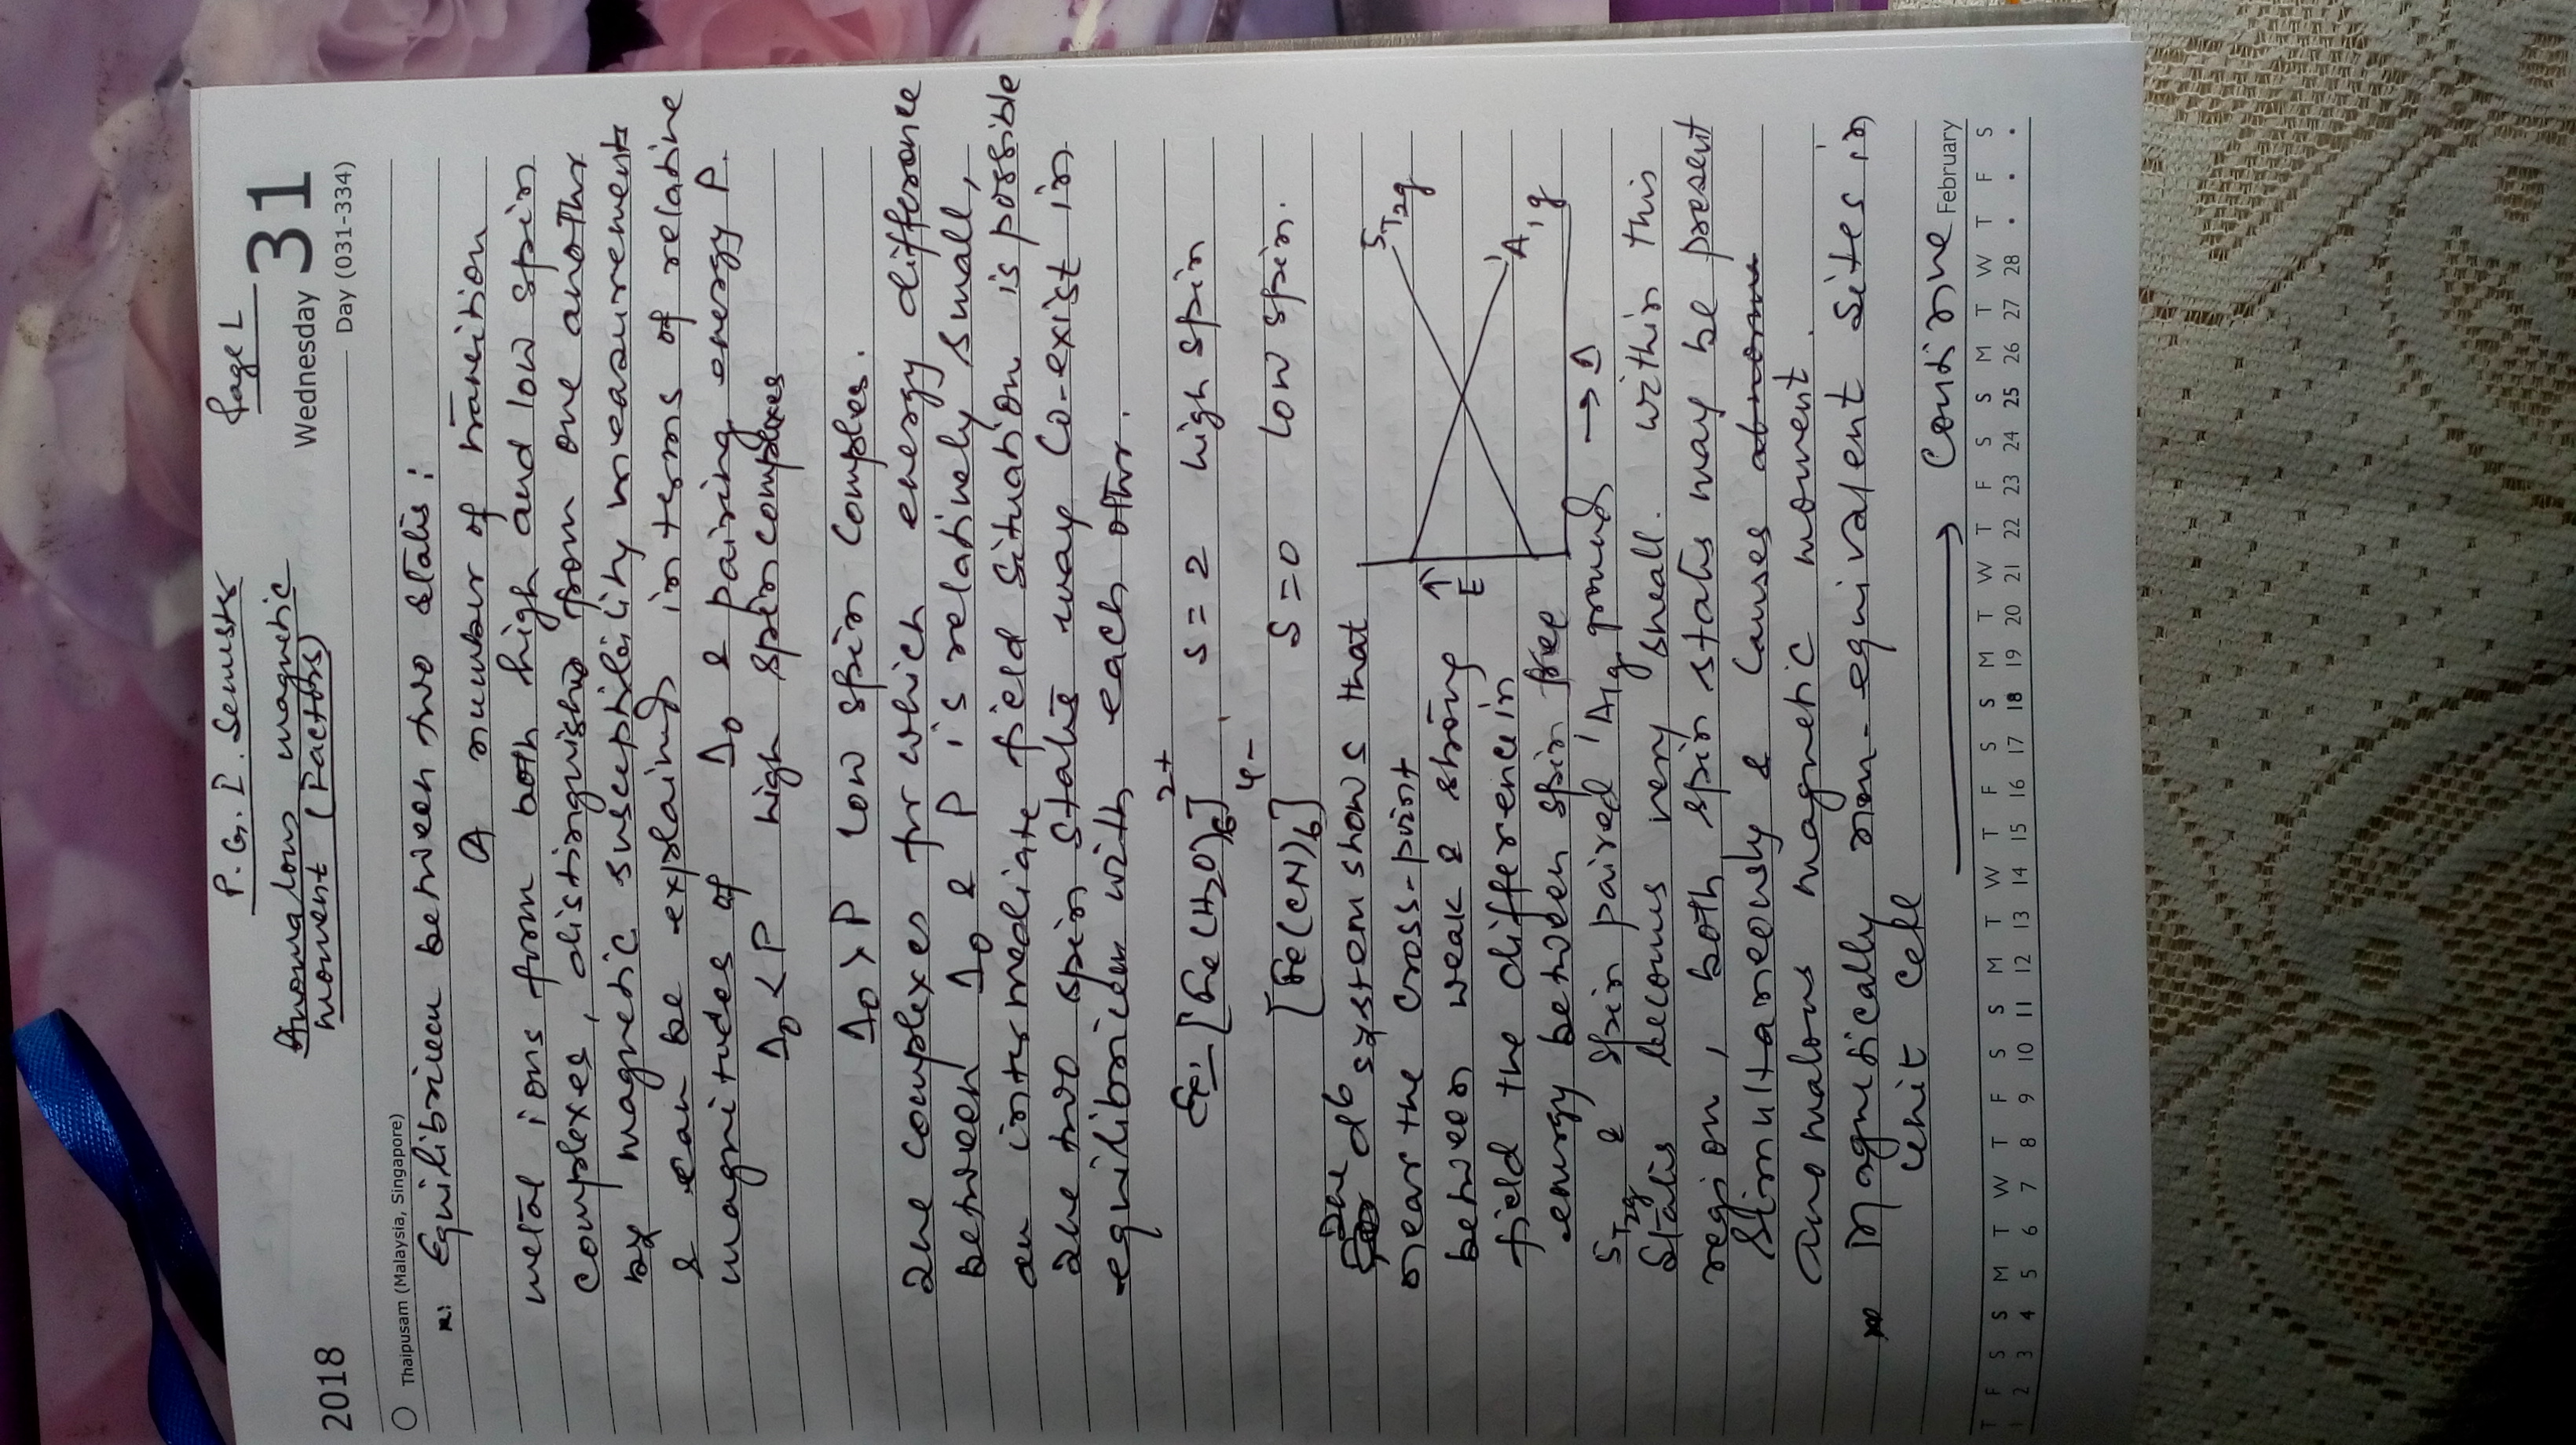 P.G. I. Semester Page 1
Anomalous magnetic
moment (Factors)
2018
Wednesday 31
Day (031-334)
Thaipusam (Malaysia, Singapore)
Equilibrium between two states:
A number of transition
metal ions form both high and low spin
complexes, distinguished from one another
by magnetic susceptibility measurements
& can be explained in terms of relative
magnitudes of Δo & pairing energy P.
Δo < P high spin complexes
Δo > P low spin complex.
The complexes for which energy difference
between Δo & P is relatively small,
an intermediate field situation is possible
The two spin states may co-exist in
equilibrium with each other.
Ex:- [Fe(H2O)6]2+ S = 2 high spin
[Fe(CN)6]4- S = 0 low spin.
The d6 system shows that
near the cross-point
between weak & strong
field the difference in
energy between spin free
5T2g & spin paired 1A1g ground
states becomes very small. within this
region, both spin states may be present
simultaneously & causes
anomalous magnetic moment.
Magnetically non-equivalent sites in
unit cell
↑
E
5T2g
1A1g
→ Δ
→ Continue
February
T F S S M T W T F S S M T W T F S S M T W T F S S M T W T F S
1 2 3 4 5 6 7 8 9 10 11 12 13 14 15 16 17 18 19 20 21 22 23 24 25 26 27 28 • • •